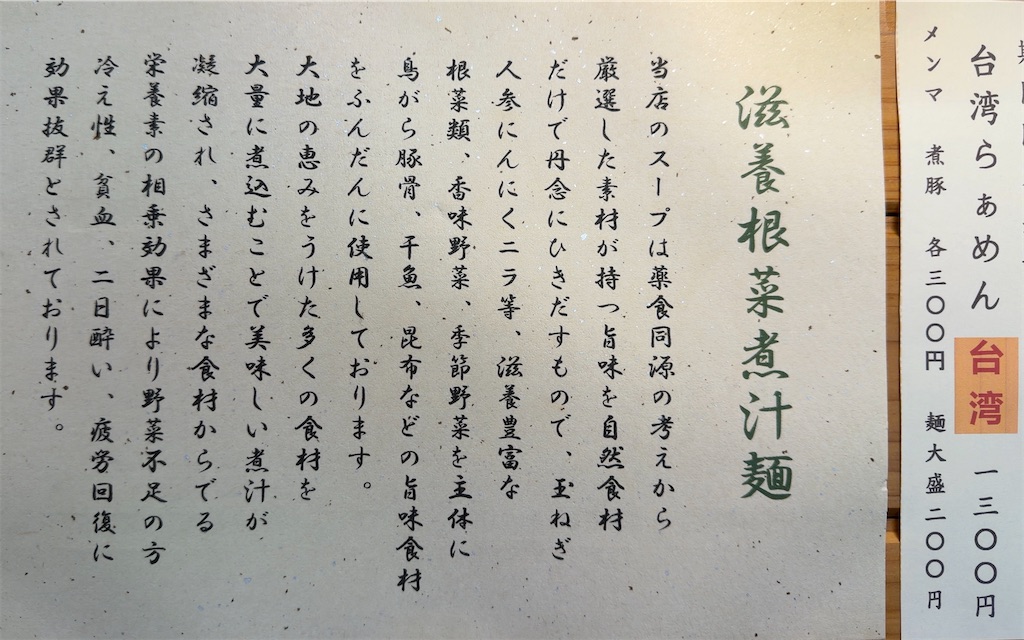 台湾らぁめん 台湾 一三〇〇円
メンマ 煮豚 各三〇〇円 麺大盛二〇〇円
滋養根菜煮汁麺
当店のスープは薬食同源の考えから
厳選した素材が持つ旨味を自然食材
だけで丹念にひきだすもので、玉ねぎ
人参にんにくニラ等、滋養豊富な
根菜類、香味野菜、季節野菜を主体に
鳥がら豚骨、干魚、昆布などの旨味食材
をふんだんに使用しております。
大地の恵みをうけた多くの食材を
大量に煮込むことで美味しい煮汁が
凝縮され、さまざまな食材からでる
栄養素の相乗効果により野菜不足の方
冷え性、貧血、二日酔い、疲労回復に
効果抜群とされております。